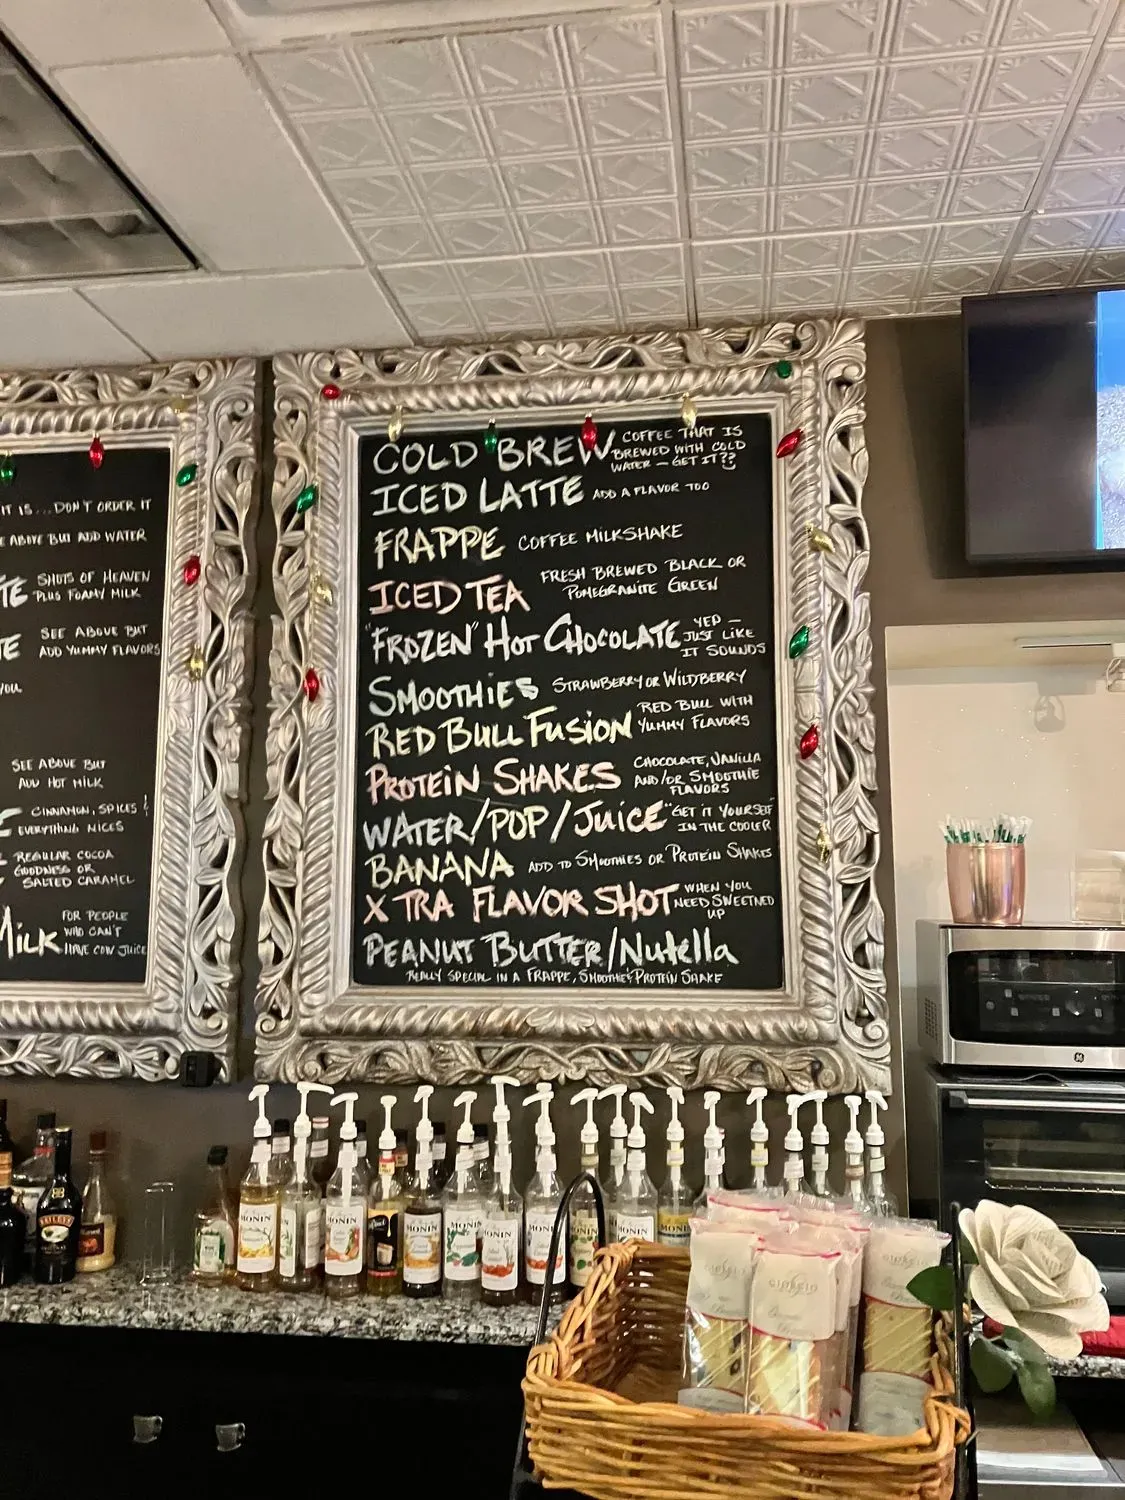 IT IS...DON'T ORDER IT
ABOVE BUT ADD WATER
SHOTS OF HEAVEN
PLUS FOAMY MILK
SEE ABOVE BUT
ADD YUMMY FLAVORS
YOU
SEE ABOVE BUT
ADD HOT MILK
CINNAMON, SPICES &
EVERYTHING NICES
REGULAR COCOA
GOODNESS OR
SALTED CARAMEL
MILK FOR PEOPLE
WHO CAN'T
HAVE COW JUICE
COLD BREW COFFEE THAT IS
BREWED WITH COLD
WATER — GET IT??
ICED LATTE ADD A FLAVOR TOO
FRAPPE COFFEE MILKSHAKE
ICED TEA FRESH BREWED BLACK OR
POMEGRANITE GREEN
"FROZEN" HOT CHOCOLATE YEP —
JUST LIKE
IT SOUNDS
SMOOTHIES STRAWBERRY OR WILDBERRY
RED BULL FUSION RED BULL WITH
YUMMY FLAVORS
PROTEIN SHAKES CHOCOLATE, VANILLA
AND/OR SMOOTHIE
FLAVORS
WATER/POP/JUICE "GET IT YOURSELF"
IN THE COOLER
BANANA ADD TO SMOOTHIES OR PROTEIN SHAKES
X TRA FLAVOR SHOT WHEN YOU
NEED SWEETNED
UP
PEANUT BUTTER/Nutella
REALLY SPECIAL IN A FRAPPE, SMOOTHIE & PROTEIN SHAKE
BAILEYS
MONIN
MONIN
MONIN
MONIN
MONIN
MONIN
GIORGIO